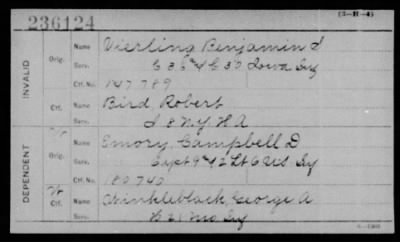 236124
(3-R-4)
INVALID
Orig.
Name Vierling Benjamin
Serv. E 36 & C 30 Iowa Inf
Ctf. No. 147789
Ctf.
Name Bird Robert
Serv. I 8 N.Y. H A
DEPENDENT
Orig.
Name Emory, Campbell D
Serv. Capt 9" U.S. Inf
Ctf. No. 180740
Ctf.
Name Winkleblack, George A
Serv. B 21 Mo Inf